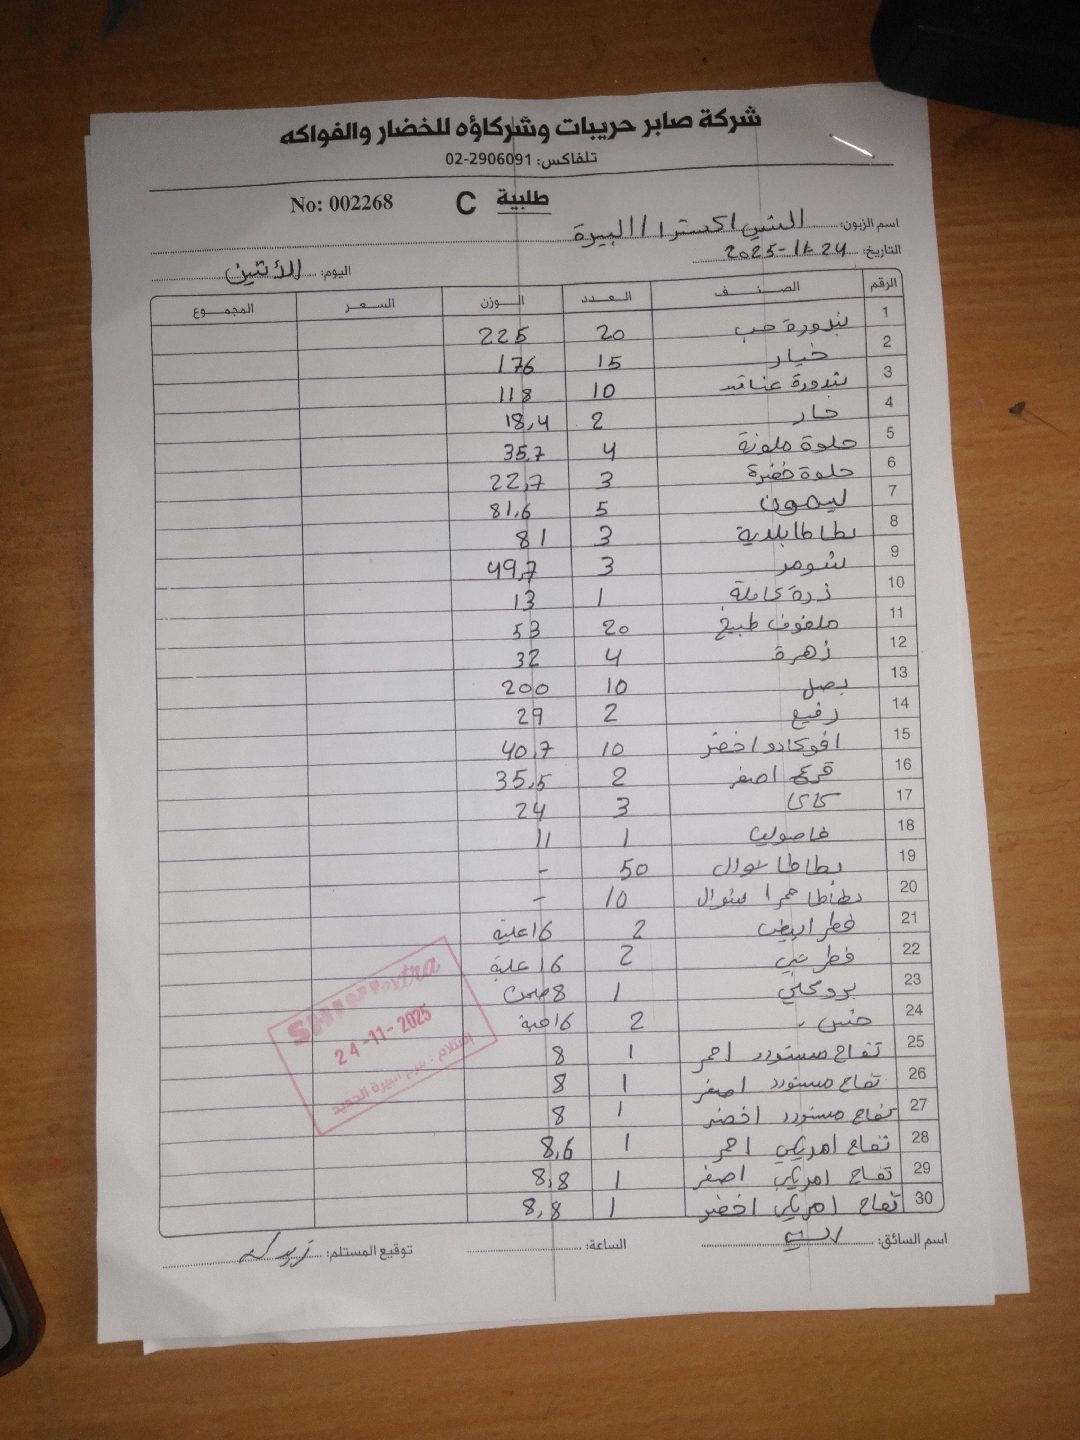 شركة صابر حريبات وشركاؤه للخضار والفواكه
تلفاكس: 02-2906091
No: 002268 C طلبية
اسم الزبون: الشني اكسترا / البيرة
التاريخ: 24-11-2025
اليوم: الأثنين
الرقم الصنف العدد الوزن السعر المجموع
1 بندورة حب 20 225
2 خيار 15 176
3 بندورة عناقيد 10 118
4 حار 2 18,4
5 حلوة ملونة 4 35,7
6 حلوة خضرة 3 22,7
7 ليمون 5 81,6
8 بطاطا بلدية 3 81
9 شومر 3 49,7
10 ذرة كاملة 1 13
11 ملفوف طبيخ 20 53
12 زهرة 4 32
13 بصل 10 200
14 رفيع 2 29
15 افوكادو اخضر 10 40,7
16 قرع اصفر 2 35,5
17 كاكا 3 24
18 فاصوليا 1 11
19 بطاطا شوال 50 -
20 بطاطا حمرا شوال 10 -
21 فطر ابيض 2 16 علبة
22 فطر بني 2 16 علبة
23 بروكلي 1 8
24 خس 2 16 حبة
25 تفاح مستورد احمر 1 8
26 تفاح مستورد اصفر 1 8
27 تفاح مستورد اخضر 1 8
28 تفاح امريكي احمر 1 8,6
29 تفاح امريكي اصفر 1 8,8
30 تفاح امريكي اخضر 1 8,8
SHINI extra
24-11-2025
اسم السائق:
الساعة:
توقيع المستلم: